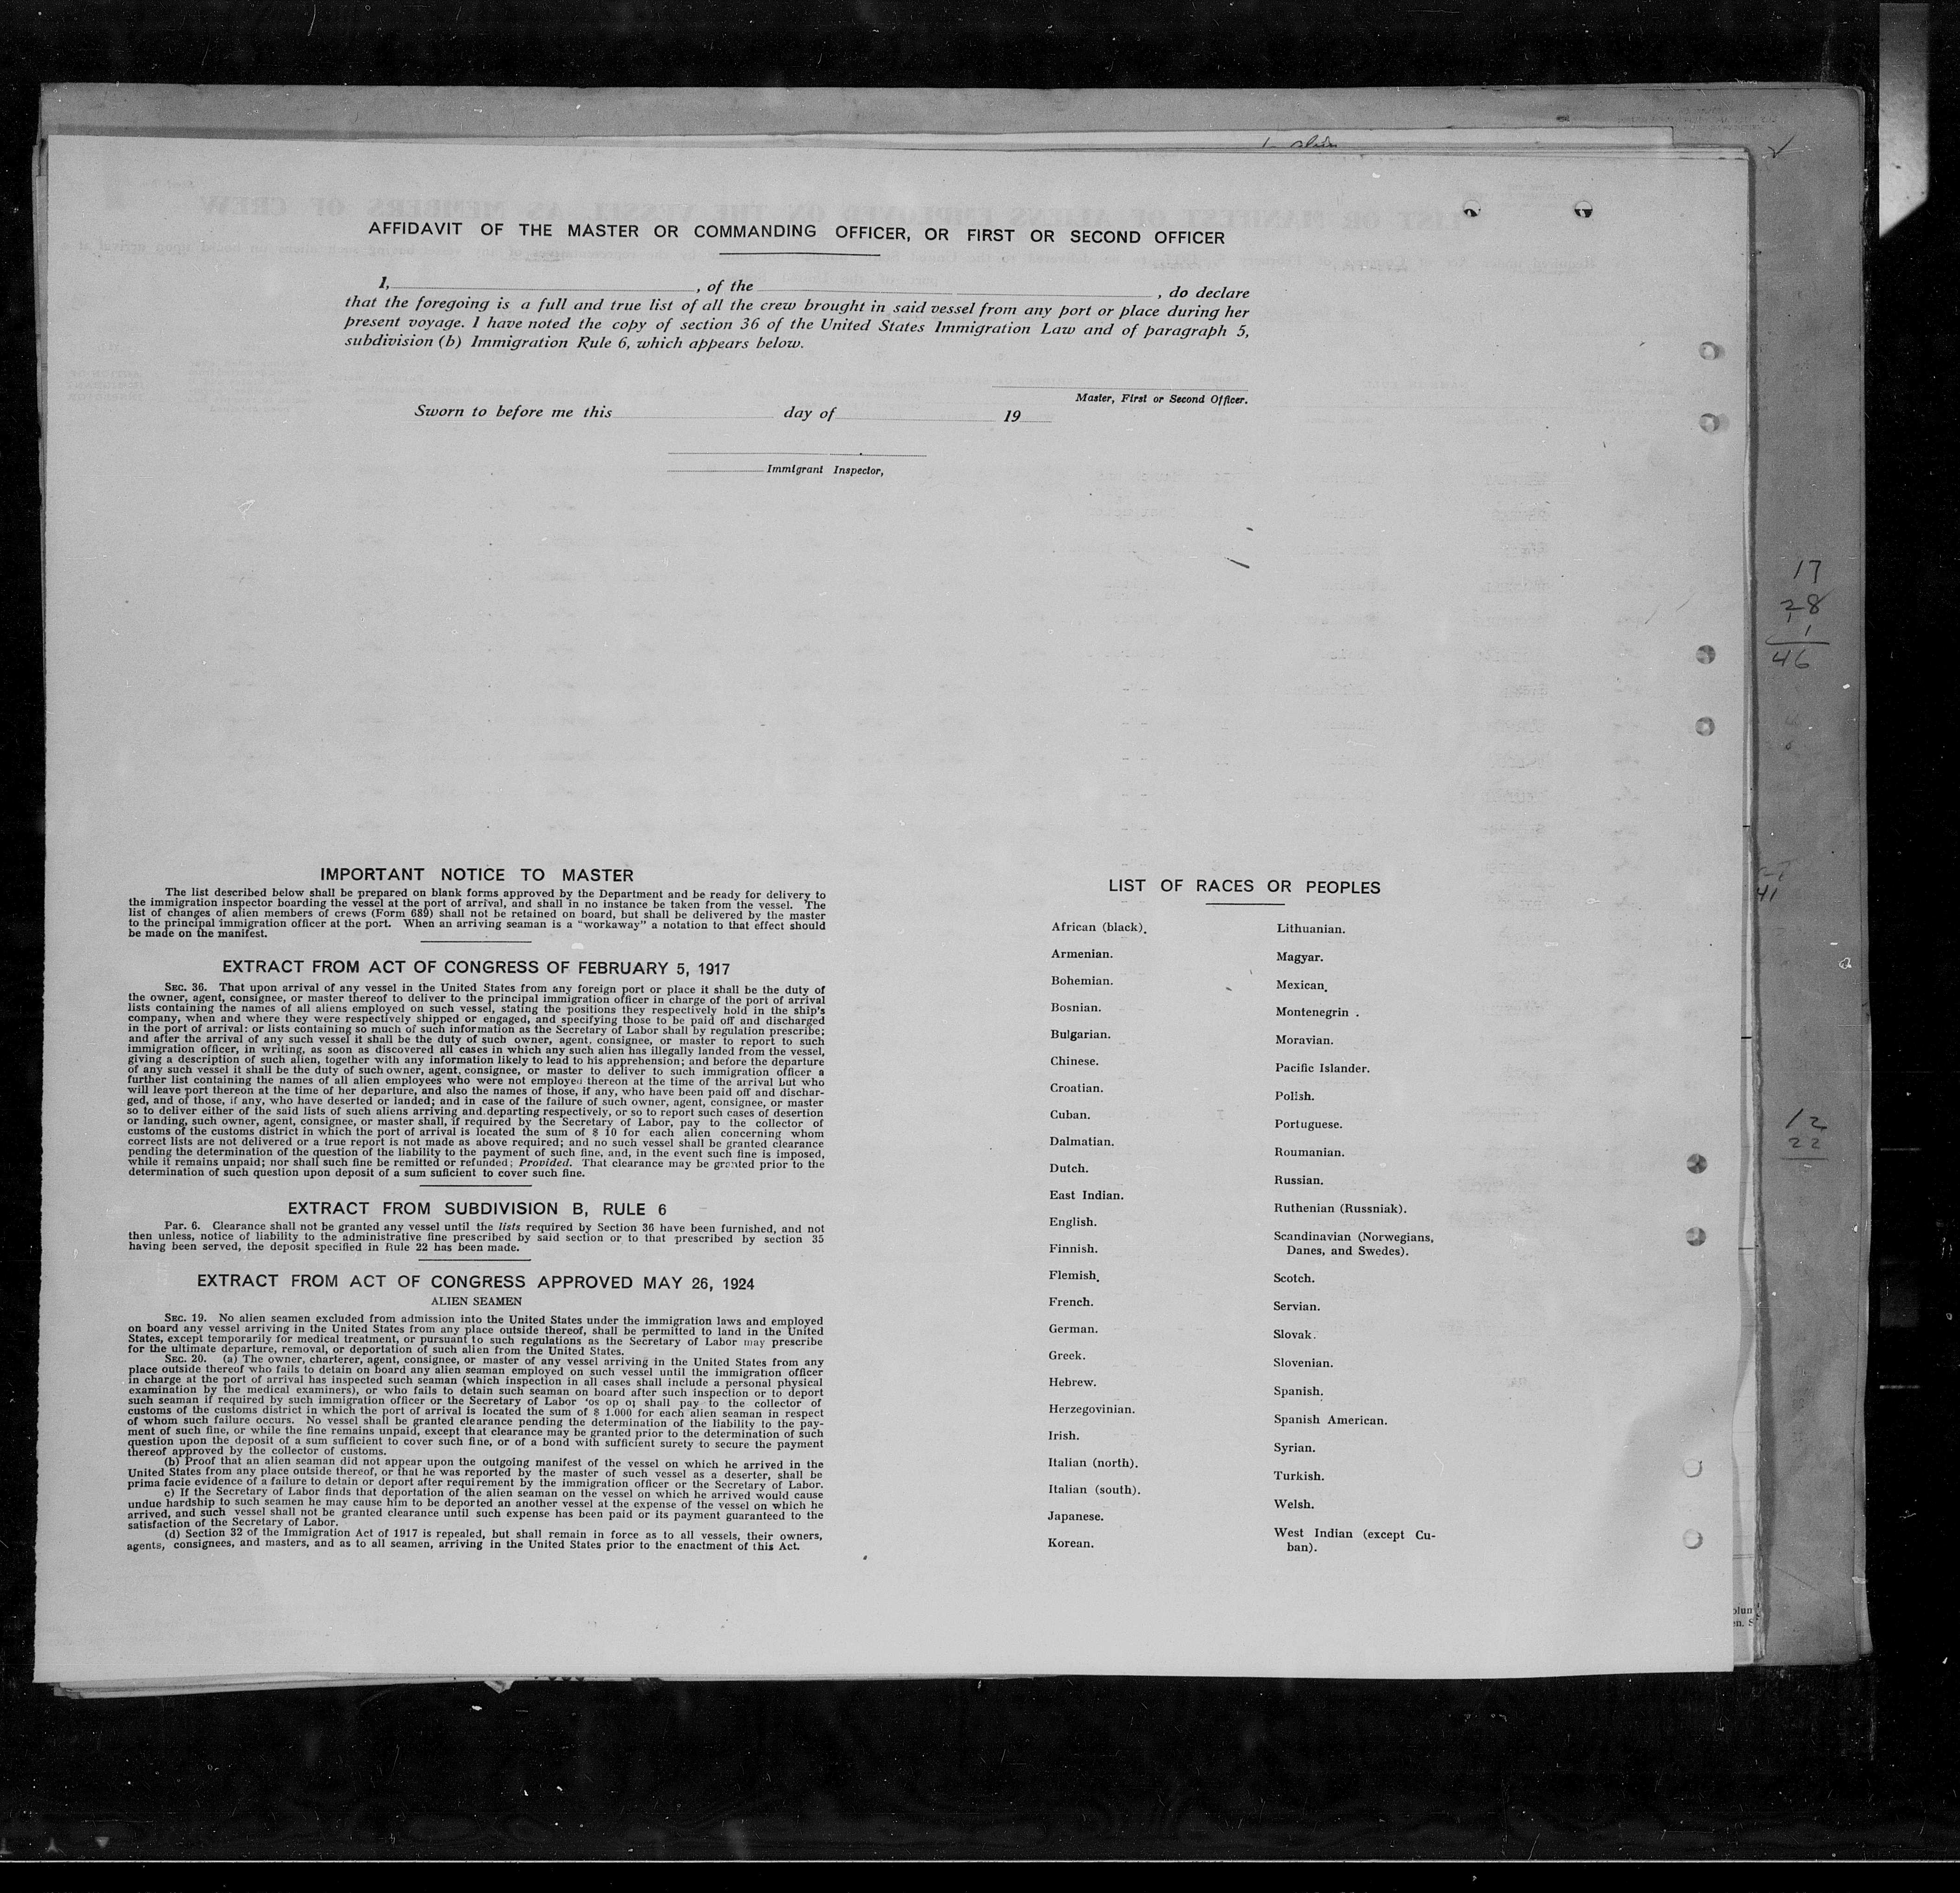 AFFIDAVIT OF THE MASTER OR COMMANDING OFFICER, OR FIRST OR SECOND OFFICER
I, , of the , do declare
that the foregoing is a full and true list of all the crew brought in said vessel from any port or place during her
present voyage. I have noted the copy of section 36 of the United States Immigration Law and of paragraph 5,
subdivision (b) Immigration Rule 6, which appears below.
Master, First or Second Officer.
Sworn to before me this day of 19
Immigrant Inspector,
IMPORTANT NOTICE TO MASTER
The list described below shall be prepared on blank forms approved by the Department and be ready for delivery to
the immigration inspector boarding the vessel at the port of arrival, and shall in no instance be taken from the vessel. The
list of changes of alien members of crews (Form 689) shall not be retained on board, but shall be delivered by the master
to the principal immigration officer at the port. When an arriving seaman is a "workaway" a notation to that effect should
be made on the manifest.
EXTRACT FROM ACT OF CONGRESS OF FEBRUARY 5, 1917
SEC. 36. That upon arrival of any vessel in the United States from any foreign port or place it shall be the duty of
the owner, agent, consignee, or master thereof to deliver to the principal immigration officer in charge of the port of arrival
lists containing the names of all aliens employed on such vessel, stating the positions they respectively hold in the ship's
company, when and where they were respectively shipped or engaged, and specifying those to be paid off and discharged
in the port of arrival: or lists containing so much of such information as the Secretary of Labor shall by regulation prescribe;
and after the arrival of any such vessel it shall be the duty of such owner, agent. consignee, or master to report to such
immigration officer, in writing, as soon as discovered all cases in which any such alien has illegally landed from the vessel,
giving a description of such alien, together with any information likely to lead to his apprehension; and before the departure
of any such vessel it shall be the duty of such owner, agent, consignee, or master to deliver to such immigration officer a
further list containing the names of all alien employees who were not employed thereon at the time of the arrival but who
will leave port thereon at the time of her departure, and also the names of those, if any, who have been paid off and dischar-
ged, and of those, if any, who have deserted or landed; and in case of the failure of such owner, agent, consignee, or master
so to deliver either of the said lists of such aliens arriving and departing respectively, or so to report such cases of desertion
or landing, such owner, agent, consignee, or master shall, if required by the Secretary of Labor, pay to the collector of
customs of the customs district in which the port of arrival is located the sum of $ 10 for each alien concerning whom
correct lists are not delivered or a true report is not made as above required; and no such vessel shall be granted clearance
pending the determination of the question of the liability to the payment of such fine, and, in the event such fine is imposed,
while it remains unpaid; nor shall such fine be remitted or refunded; Provided. That clearance may be granted prior to the
determination of such question upon deposit of a sum suficient to cover such fine.
EXTRACT FROM SUBDIVISION B, RULE 6
Par. 6. Clearance shall not be granted any vessel until the lists required by Section 36 have been furnished, and not
then unless, notice of liability to the administrative fine prescribed by said section or to that prescribed by section 35
having been served, the deposit specified in Rule 22 has been made.
EXTRACT FROM ACT OF CONGRESS APPROVED MAY 26, 1924
ALIEN SEAMEN
SEC. 19. No alien seamen excluded from admission into the United States under the immigration laws and employed
on board any vessel arriving in the United States from any place outside thereof, shall be permitted to land in the United
States, except temporarily for medical treatment, or pursuant to such regulations as the Secretary of Labor may prescribe
for the ultimate departure, removal, or deportation of such alien from the United States.
SEC. 20. (a) The owner, charterer, agent, consignee, or master of any vessel arriving in the United States from any
place outside thereof who fails to detain on board any alien seaman employed on such vessel until the immigration officer
in charge at the port of arrival has inspected such seaman (which inspection in all cases shall include a personal physical
examination by the medical examiners), or who fails to detain such seaman on board after such inspection or to deport
such seaman if required by such immigration officer or the Secretary of Labor 'os op oʇ shall pay to the collector of
customs of the customs district in which the port of arrival is located the sum of $ 1.000 for each alien seaman in respect
of whom such failure occurs. No vessel shall be granted clearance pending the determination of the liability to the pay-
ment of such fine, or while the fine remains unpaid, except that clearance may be granted prior to the determination of such
question upon the deposit of a sum sufficient to cover such fine, or of a bond with sufficient surety to secure the payment
thereof approved by the collector of customs.
(b) Proof that an alien seaman did not appear upon the outgoing manifest of the vessel on which he arrived in the
United States from any place outside thereof, or that he was reported by the master of such vessel as a deserter, shall be
prima facie evidence of a failure to detain or deport after requirement by the immigration officer or the Secretary of Labor.
c) If the Secretary of Labor finds that deportation of the alien seaman on the vessel on which he arrived would cause
undue hardship to such seamen he may cause him to be deported an another vessel at the expense of the vessel on which he
arrived, and such vessel shall not be granted clearance until such expense has been paid or its payment guaranteed to the
satisfaction of the Secretary of Labor.
(d) Section 32 of the Immigration Act of 1917 is repealed, but shall remain in force as to all vessels, their owners,
agents, consignees, and masters, and as to all seamen, arriving in the United States prior to the enactment of this Act.
LIST OF RACES OR PEOPLES
African (black).
Armenian.
Bohemian.
Bosnian.
Bulgarian.
Chinese.
Croatian.
Cuban.
Dalmatian.
Dutch.
East Indian.
English.
Finnish.
Flemish.
French.
German.
Greek.
Hebrew.
Herzegovinian.
Irish.
Italian (north).
Italian (south).
Japanese.
Korean.
Lithuanian.
Magyar.
Mexican.
Montenegrin .
Moravian.
Pacific Islander.
Polish.
Portuguese.
Roumanian.
Russian.
Ruthenian (Russniak).
Scandinavian (Norwegians,
Danes, and Swedes).
Scotch.
Servian.
Slovak.
Slovenian.
Spanish.
Spanish American.
Syrian.
Turkish.
Welsh.
West Indian (except Cu-
ban).
17
28
1
46
41
12
22